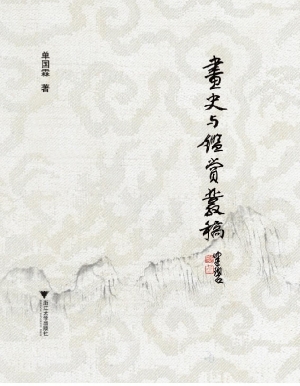 单国霖 著
畫史与鑑赏叢稿
浙江大学出版社